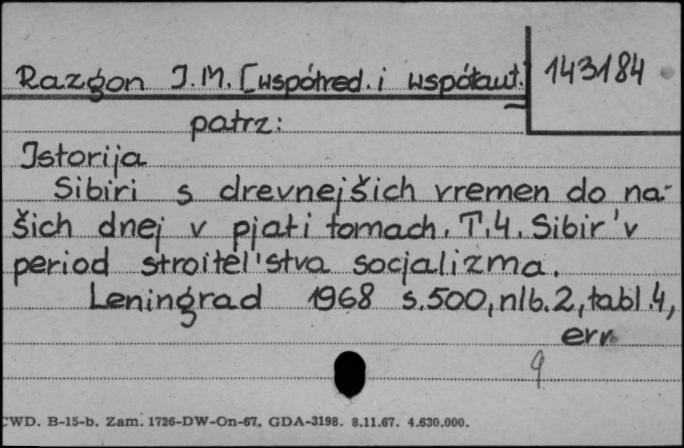 Razgon J.M. [współred. i współaut.] 143184
patrz:
Istorija
Sibiri s drevnejšich vremen do na-
šich dnej v pjati tomach. T.4. Sibir' v
period stroitel'stva socjalizma.
Leningrad 1968 s. 500, nlb. 2, tabl. 4,
err.
9
CWD. B-15-b. Zam. 1726-DW-On-67. GDA-3198. 8.11.67. 4.630.000.